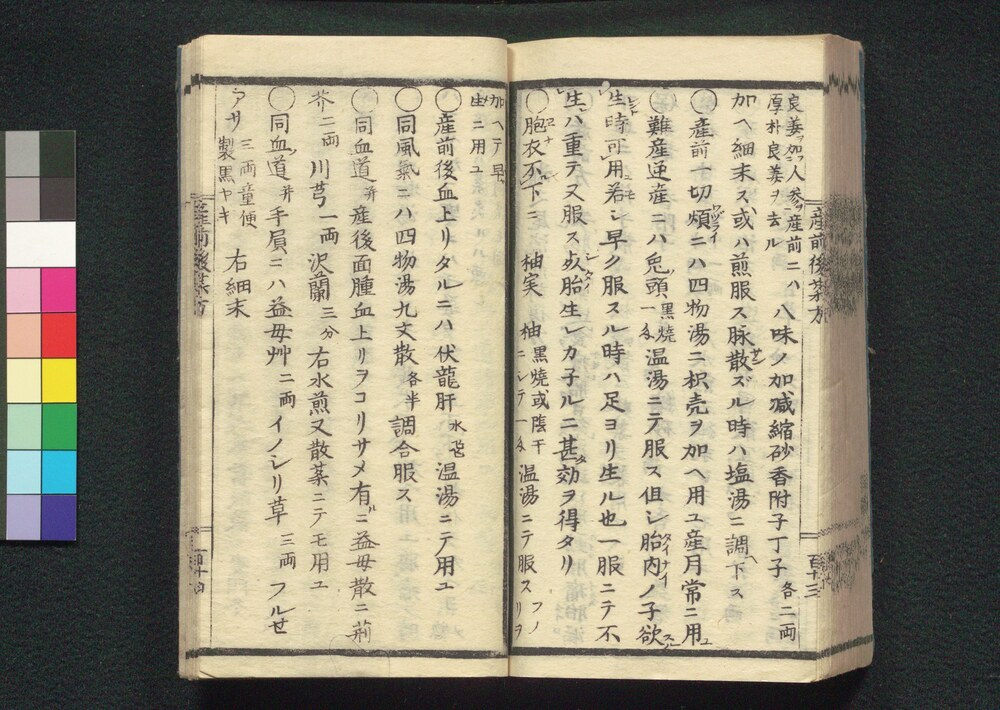 産前後薬方
百十三
良姜ヲ加フ人参ヲ産前ニハ
厚朴良姜ヲ去ル
八味ノ加减縮砂香附子丁子 各二両
加ヘ細末ス或ハ煎服ス脉散ズル時ハ塩湯ニ調ヘ下ス
○産前一切煩ニハ四物湯ニ枳売ヲ加ヘ用ユ産月常ニ用ユ
○難産逆産ニハ兎頭 黒焼 温湯ニテ服ス但シ胎内ノ子欲
生時可用若シ早ク服スル時ハ足ヨリ生ル也一服ニテ不
生ハ重テス服ス 胎生レカ子ルニ甚効ヲ得タリ
○胞衣不下ニ 柚実 柚 黒焼或陰干 ニシテ 温湯ニテ服ス フノリヲ
加ヘテ早
生ニ用ユ
○産前後血上リタルニハ伏龍肝 水 温湯ニテ用ユ
○同風氣ニハ四物湯九文散 各半 調合服ス
○同血道并産後面腫血上リヲコリサメ有ニ益母散ニ荊
芥二両 川芎一両 沢蘭 三分 右水煎又散薬ニテモ用ユ
○同血道并手屓ニハ益母艸 二両 イノシリ草 三両 フルせ
アサ 三両童便 製黒ヤキ 右細末
産前後薬方
百十四